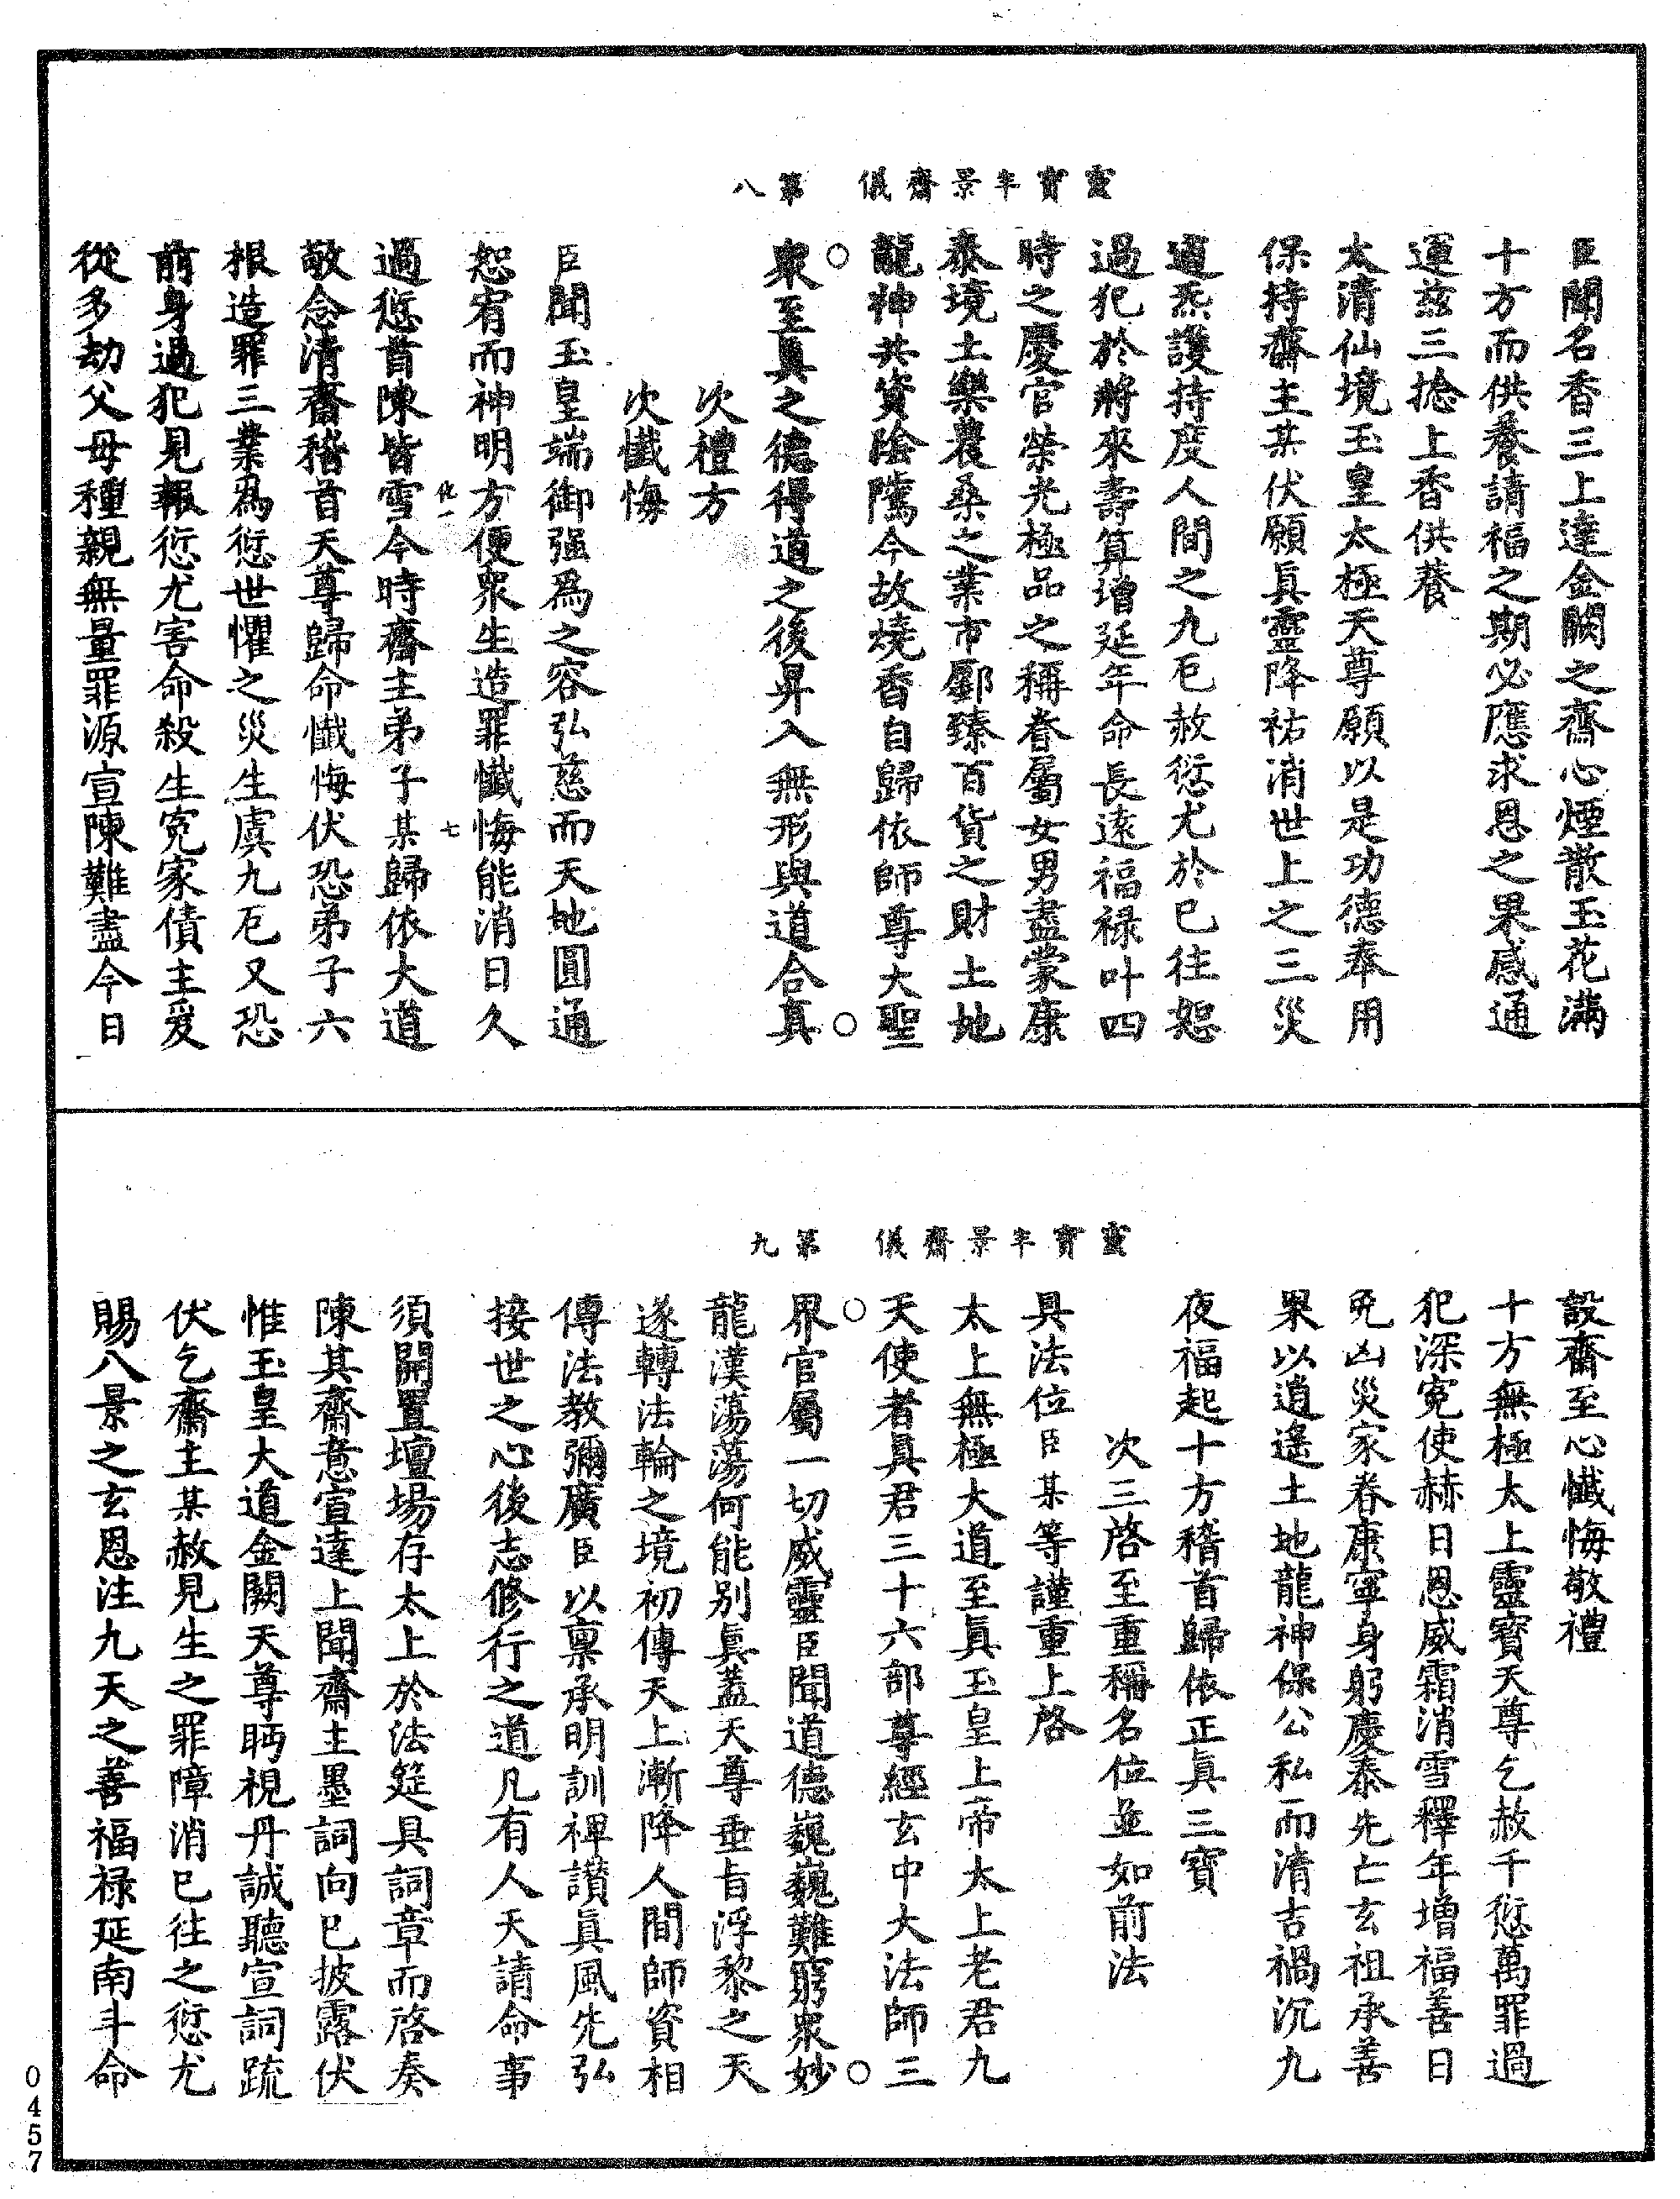 靈寶半景齋儀　第八
臣聞名香三上達金闕之齋心煙散玉花滿
十方而供養請福之期必應求恩之果感通
運兹三捻上香供養
太清仙境玉皇太極天尊願以是功德奉用
保持齋主某伏願眞靈降祐消世上之三災
道炁護持度人間之九厄赦愆尤於已往恕
過犯於將來壽算增延年命長遠福禄叶四
時之慶官榮光極品之稱眷屬女男盡蒙康
泰境土樂農桑之業市鄽臻百貨之財土地
龍神共資陰隲今故燒香自歸依師尊大聖
衆至眞之德得道之後昇入無形與道合真
次禮方
次懺悔
臣聞玉皇端御强爲之容弘慈而天地圓通
恕宥而神明方便衆生造罪懺悔能消日久
過愆首陳皆雪今時齋主弟子某歸依大道
敬念清齋稽首天尊歸命懺悔伏恐弟子六
根造罪三業爲愆世懼之災生虞九厄又恐
前身過犯見報愆尤害命殺生寃家債主爰
從多劫父母種親無量罪源宣陳難盡今日
靈寶半景齋儀　第九
設齋至心懺悔敬禮
十方無極太上靈寶天尊乞赦千愆萬罪過
犯深寃使赫日恩威霜消雪釋年增福善日
免凶災家眷康寧身躬慶泰先亡玄祖承善
果以逍遙土地龍神保公私而清吉禍沉九
夜福起十方稽首歸依正眞三寶
次三啓至重稱名位並如前法
具法位臣某等謹重上啓
太上無極大道至眞玉皇上帝太上老君九
天使者真君三十六部尊經玄中大法師三
界官屬一切威靈臣聞道德巍巍難窮衆妙
龍漢蕩蕩何能别眞蓋天尊垂旨浮黎之天
遂轉法輪之境初傳天上漸降人間師資相
傳法教彌廣臣以稟承明訓禆讃眞風先弘
接世之心後志修行之道凡有人天請命事
須開置壇場存太上於法筵具詞章而啓奏
陳其齋意宣達上聞齋主墨詞向已披露伏
惟玉皇大道金闕天尊眄視丹誠聽宣詞䟽
伏乞齋主某赦見生之罪障消已往之愆尤
賜八景之玄恩注九天之善福禄延南斗命
0457